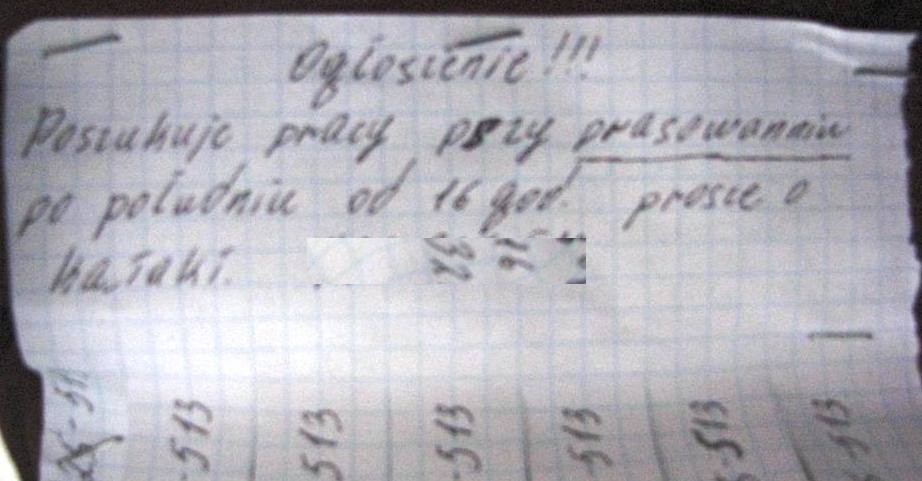 Ogłoszenie!!!
Poszukuje pracy przy prasowanniu
po południu od 16 god. prosze o
513
513
513
513
513
513